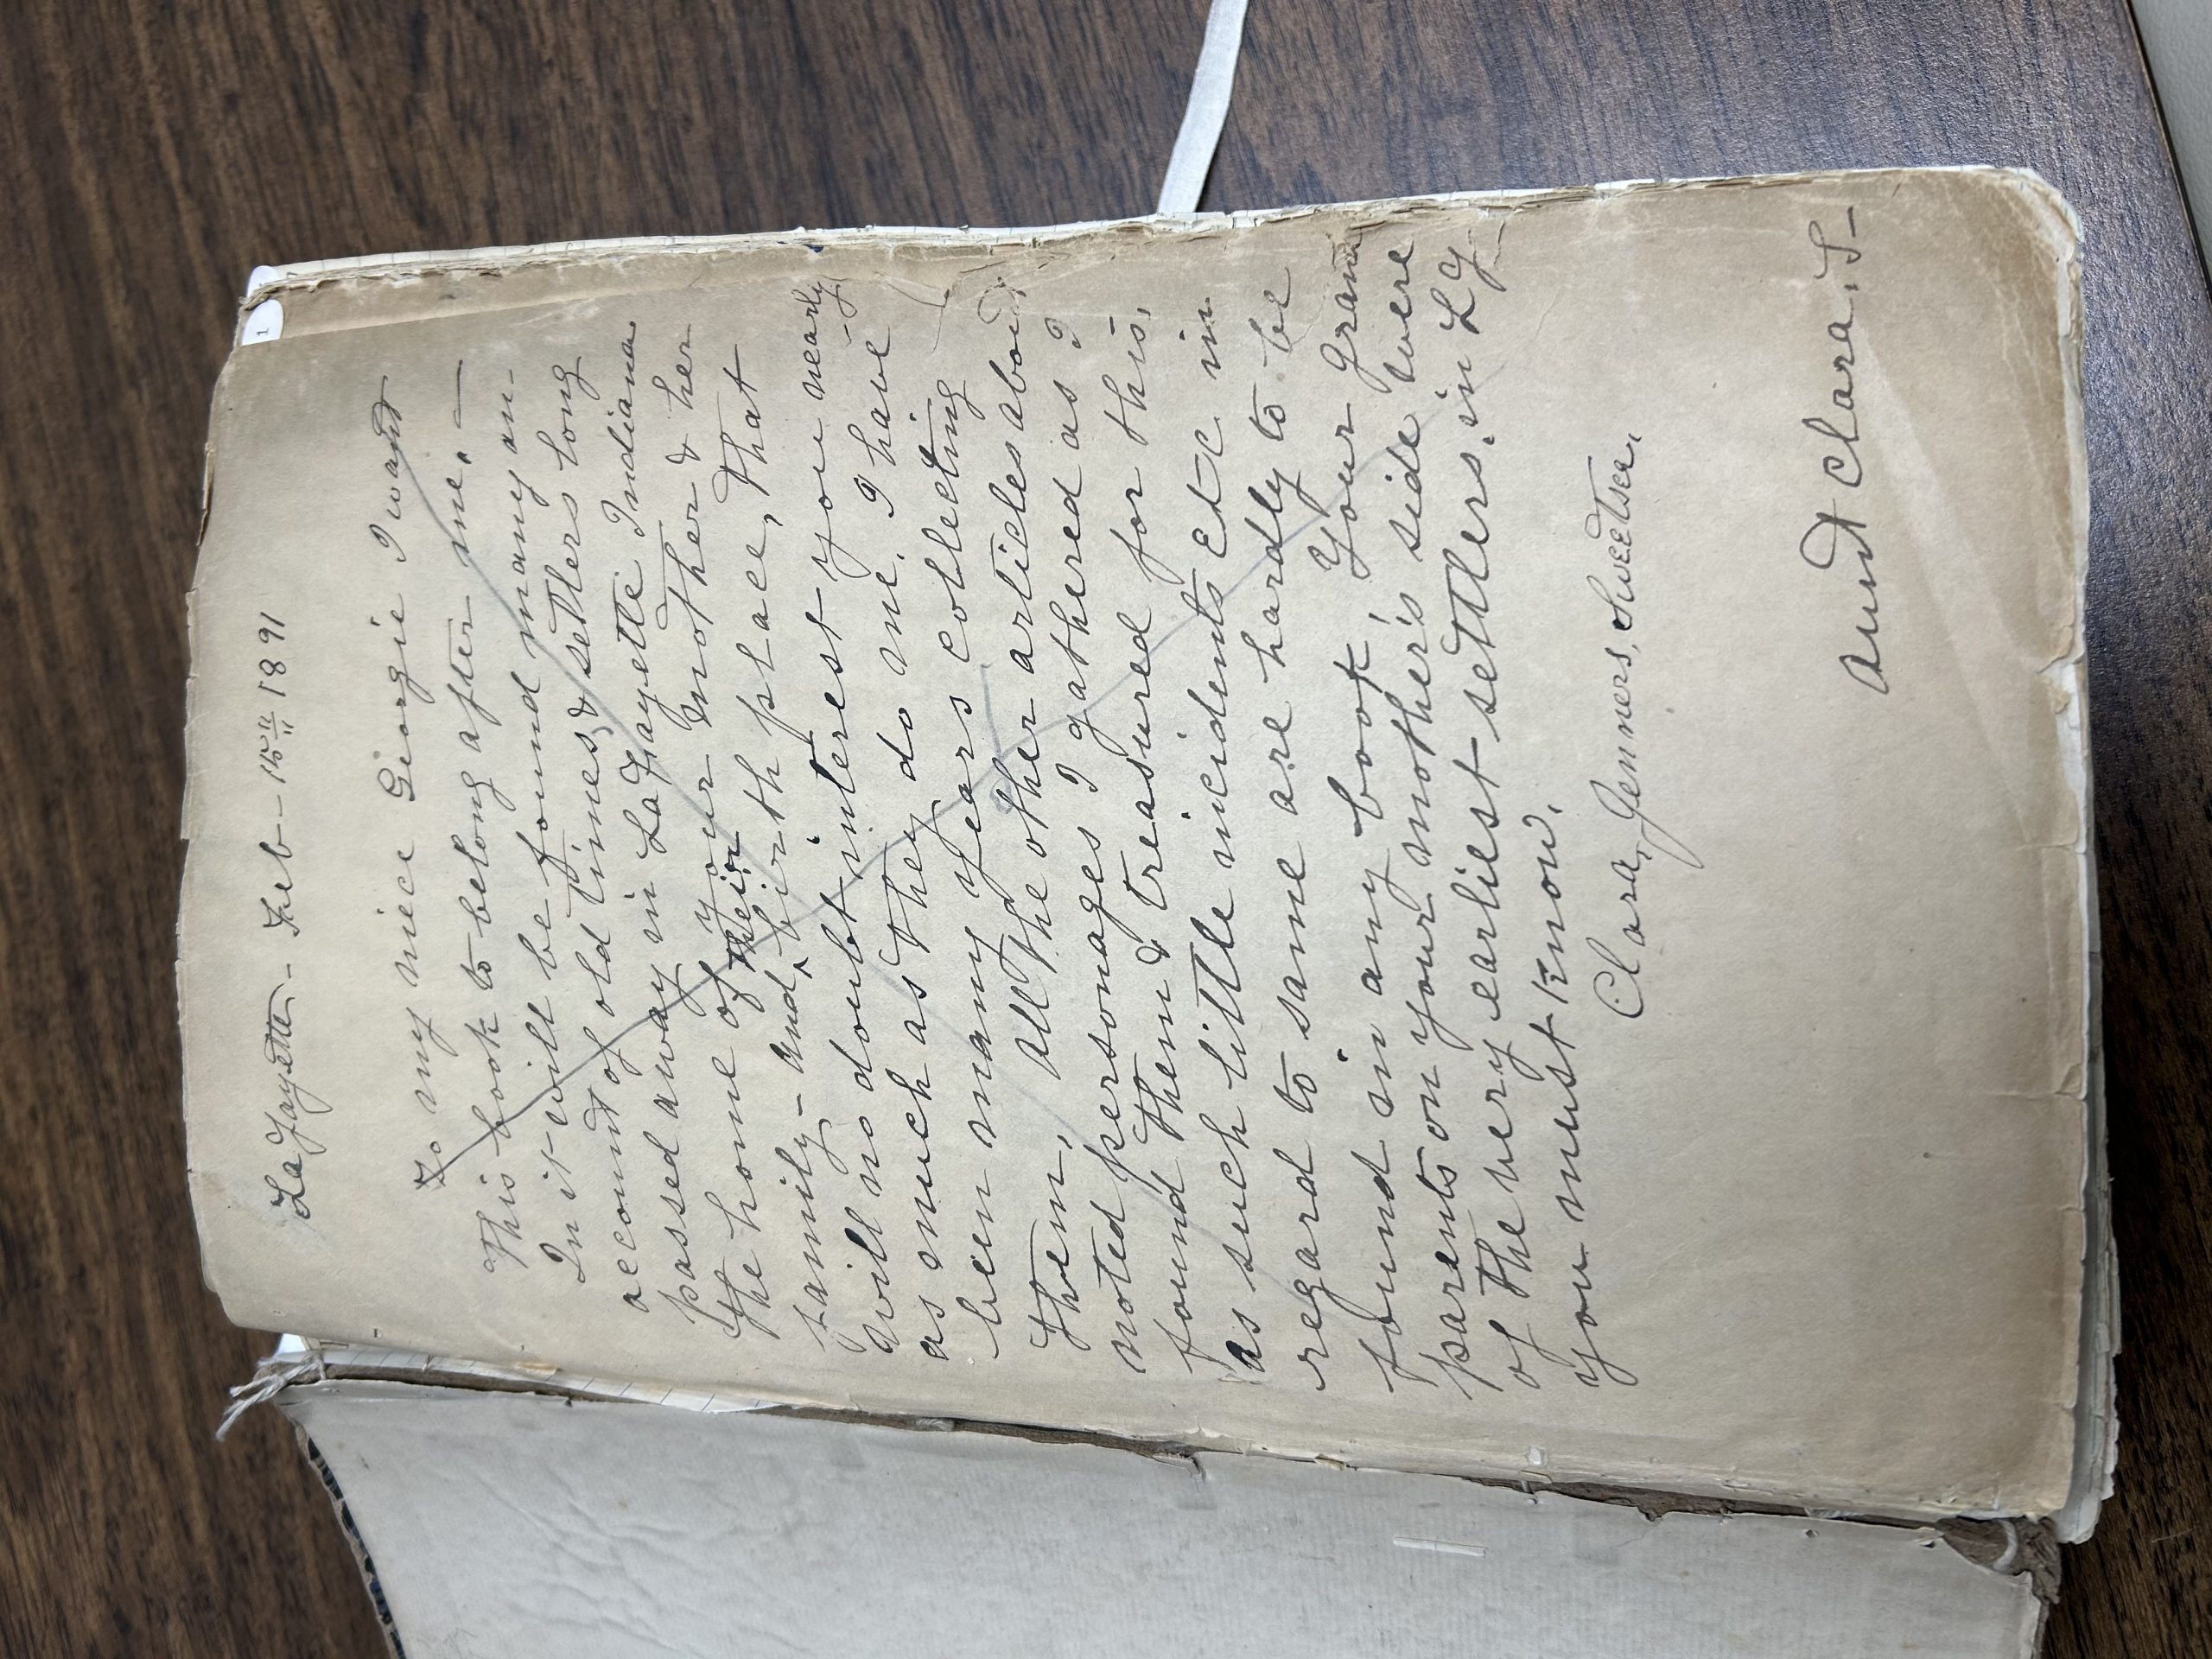 1
LaFayette - Feb - 15" 1891
To my niece Georgie I want
This book to belong after me. —
In it will be found many an-
account of old times, & settlers long
passed away in LaFayette Indiana
the home of your mother & her
family - and ^ their birth place, That
will no doubt interest you nearly
as much as they do me. I have
been many years collecting
them. All the other articles about
noted personages I gathered as I
found them & treasured for this.
as such little incidents Etc in
regard to same are hardly to be
found in any book, Your Grand
parents on your mother's side were
of the very earliest settlers. in LF
you must know.
Clara, Jenners, Sweetser.
Aunt Clara. S -